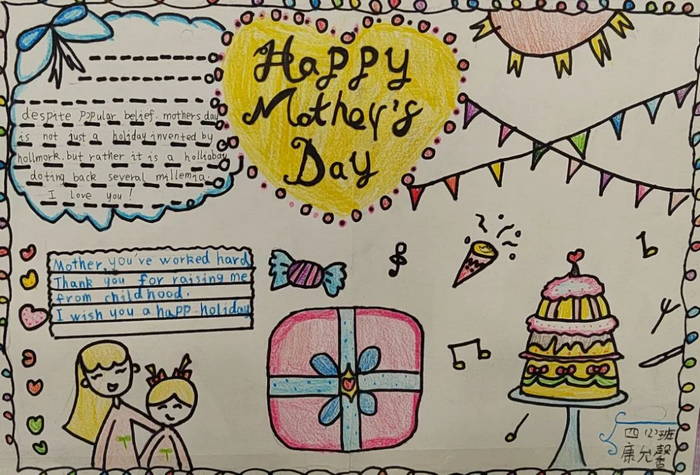 Happy
Mother's
Day
despite popular belief. mothers day
is not just a holiday invented by
hollmork. but rather it is a holliabay
doting back several millemia.
I love you!
Mother, you've worked hard
Thank you for raising me
from childhood.
I wish you a happ holiday
四(2)班
康允馨